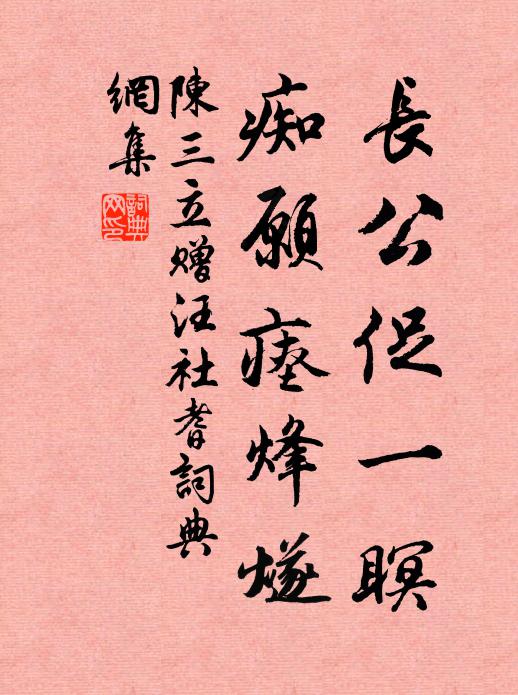 長公促一瞑
痴願瘞烽燧
陳三立赠汪社耆詞典
網集
詞典網印